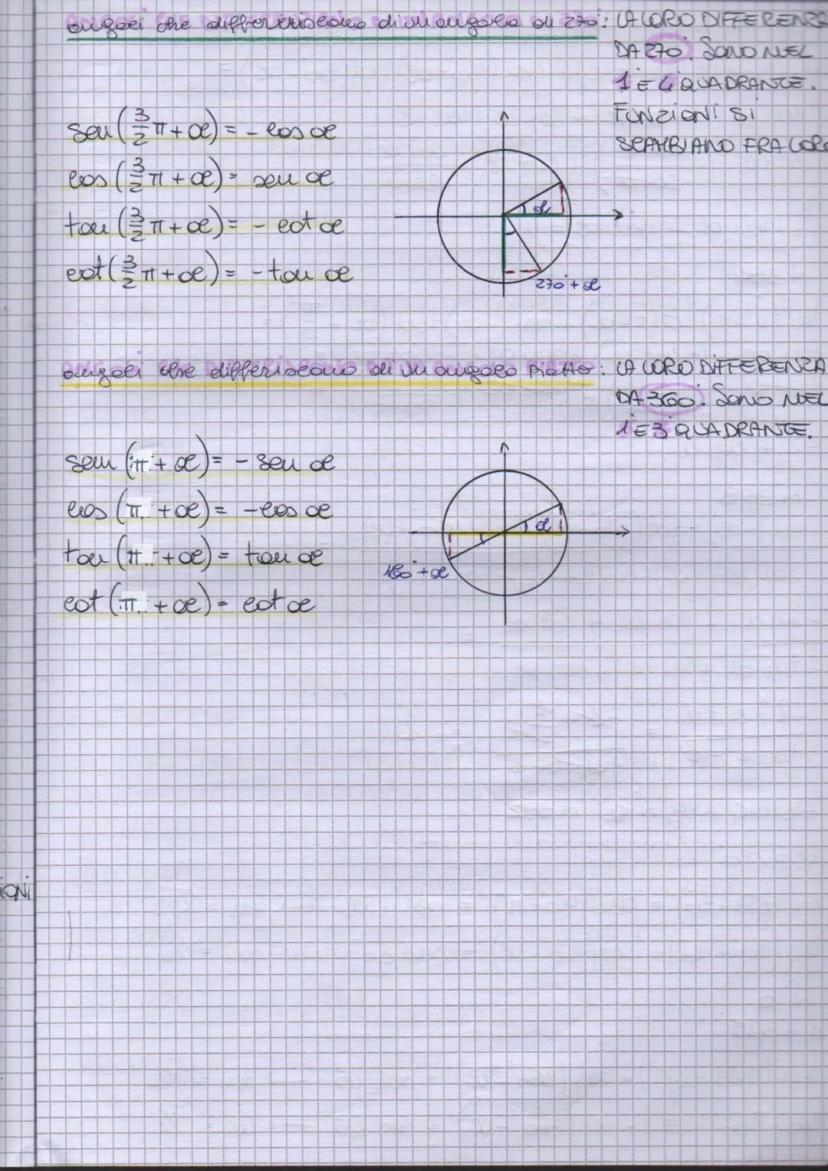 angoli che differiscono di un angolo di 270°: LA LORO DIFFERENZA
DA 270°. SONO NEL
1 E 4 QUADRANTE.
FUNZIONI SI
SCAMBIANO FRA LORO
sen(3/2 π + α) = - cos α
cos(3/2 π + α) = sen α
tan(3/2 π + α) = - cot α
cot(3/2 π + α) = - tan α
α
270° + α
angoli che differiscono di un angolo piatto: LA LORO DIFFERENZA
DA 360°. SONO NEL
1 E 3 QUADRANTE.
sen(π + α) = - sen α
cos(π + α) = - cos α
tan(π + α) = tan α
cot(π + α) = cot α
α
180° + α
IONI